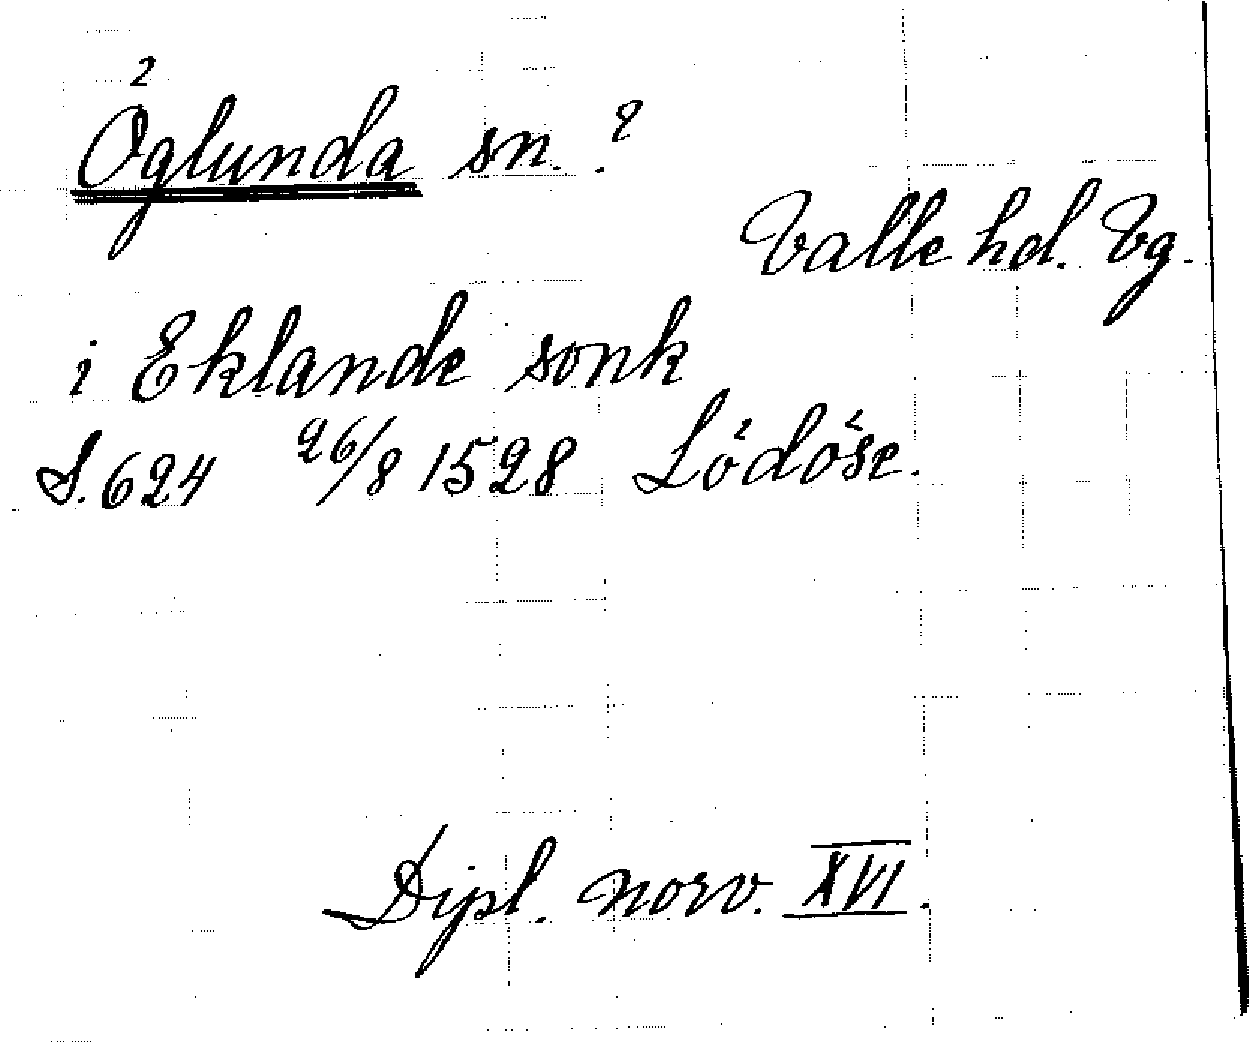 Öglunda sn. ?
Valle hd. Vg.
i Eklande sonk
S. 624 26/8 1528 Lödöse.
Dipl. norv. XVI.